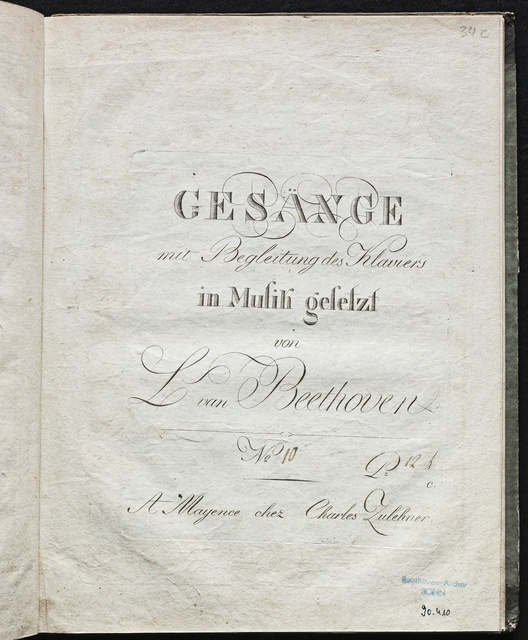 34 c
GESÄNGE
mit Begleitung des Klaviers
in Muſik geſetzt
von
L. van Beethoven
No. 10
Pr. 12
c.
A Mayence chez Charles Zulehner
Beethoven-Archiv
BONN
90.410